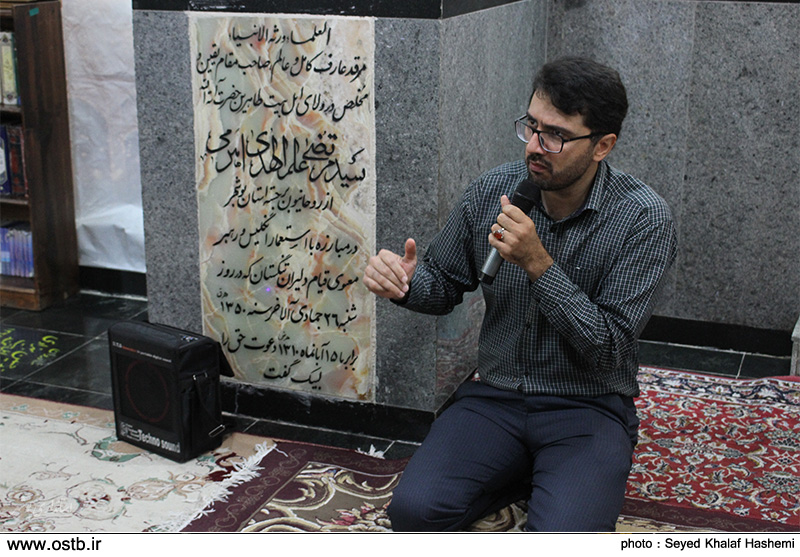 العلماء ورثة الانبیاء
مرقد عارف کامل و عالم صاحب مقام یقین و
مخلص در ولای اهل بیت طاهرین حضرت آیة الله
سید مرتضی علم الهدی اهرمی
از روحانیون برجسته استان بوشهر
در مبارزه با استعمار انگلیس و رهبر
معنوی قیام دلیران تنگستان که در روز
شنبه ۲۶ جمادی الآخر سنه ۱۳۵۰
برابر با ۱۵ آبانماه ۱۳۱۰ دعوت حق را
لبیک گفت
Techno sound
www.ostb.ir
photo : Seyed Khalaf Hashemi